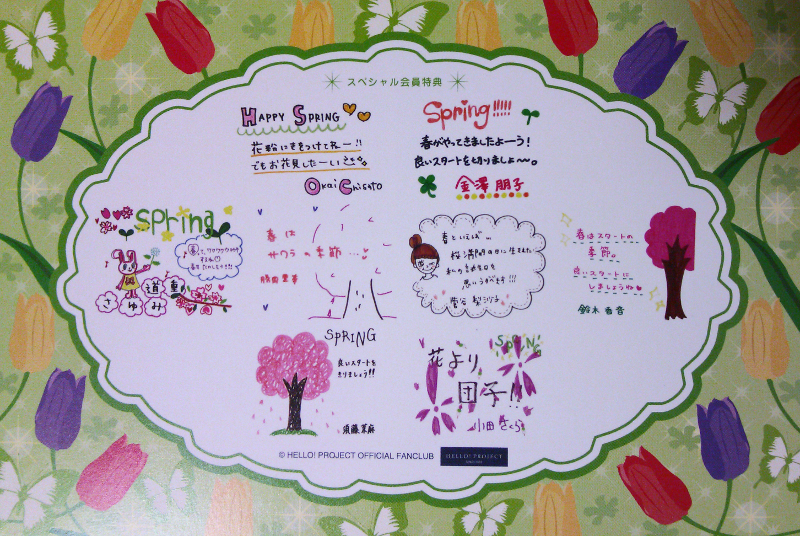 スペシャル会員特典
HAPPY SPRING
花粉にきをつけてねー!!
でもお花見したーい
Okai Chisato
Spring!!!!!
春がやってきましたよーう!
良いスタートを切りましょ〜。
金澤 朋子
spring
道重
さゆみ
春は
サクラの季節…
勝田里奈
春といえば…
桜満開の日に生まれた
私のお誕生日を
思いうかべます!!!
菅谷 梨沙子
春はスタートの
季節。
良いスタートに
しましょうね
鈴木香音
SPRING
良いスタートを
きりましょう!!
須藤茉麻
SPRING
花より
団子!!
小田さくら
© HELLO! PROJECT OFFICIAL FANCLUB
HELLO! PROJECT